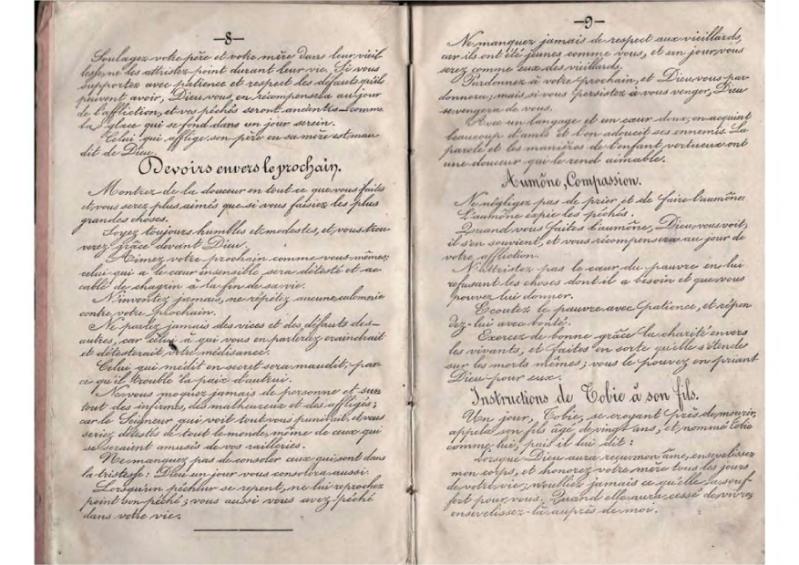 -8-
Soulagez votre père et votre mère dans leur vieil
lesse, ne les attristez point durant leur vie. Si vous
supportez avec patience et respect les défauts qu'ils
peuvent avoir, Dieu vous en récompensera au jour
de l'affliction, et vos péchés seront anéantis comme
la glace qui se fond dans un jour serein.
Celui qui afflige son père ou sa mère est mau
dit de Dieu.
Devoirs envers le prochain.
Montrez de la douceur en tout ce que vous faites
et vous serez plus aimés que si vous faisiez les plus
grandes choses.
Soyez toujours humbles et modestes, et vous trou
verez grâce devant Dieu.
Aimez votre prochain comme vous-mêmes;
celui qui a le cœur insensible sera détesté et ac
cablé de chagrin à la fin de sa vie.
N'inventez jamais, ne répétez aucune calomnie
contre votre prochain.
Ne parlez jamais des vices et des défauts des
autres, car celui à qui vous en parlerez craindrait
et détesterait votre médisance.
Celui qui médit en secret sera maudit, par
ce qu'il trouble la paix d'autrui.
Ne vous moquez jamais de personne et sur
tout des infirmes, des malheureux et des affligés;
car le Seigneur qui voit tout vous punirait, et vous
seriez détestés de tout le monde, même de ceux qui
se seraient amusés de vos railleries.
Ne manquez pas de consoler ceux qui sont dans
la tristesse: Dieu un jour vous consolera aussi.
Lorsqu'un pécheur se repent, ne lui reprochez
point son péché; vous aussi vous avez péché
dans votre vie.
-9-
Ne manquez jamais de respect aux vieillards,
car ils ont été jeunes comme vous, et un jour vous
serez comme eux des vieillards.
Pardonnez à votre prochain, et Dieu vous par
donnera, mais si vous persistez à vous venger, Dieu
se vengera de vous.
Avec un langage et un cœur doux, on acquiert
beaucoup d'amis et l'on adoucit ses ennemis. La
parole et les manières de l'enfant vertueux ont
une douceur qui le rend aimable.
Aumône, Compassion.
Ne négligez pas de prier et de faire l'aumône.
L'aumône expie les péchés.
Quand vous faites l'aumône, Dieu vous voit,
il s'en souvient, et vous récompensera au jour de
votre affliction.
N'attristez pas le cœur du pauvre en lui
refusant les choses dont il a besoin et que vous
pouvez lui donner.
Ecoutez le pauvre avec patience, et répon
dez-lui avec bonté.
Exercez de bonne grâce la charité envers
les vivants, et faites en sorte qu'elle s'étende
sur les morts mêmes; vous le pouvez en priant
Dieu pour eux.
Instructions de Tobie à son fils.
Un jour, Tobie, se croyant près de mourir,
appela son fils âgé de vingt ans, et nommé Tobie
comme lui, puis il lui dit:
Lorsque Dieu aura reçu mon âme, ensevelissez
mon corps, et honorez votre mère tous les jours
de votre vie; n'oubliez jamais ce qu'elle a souf
fert pour vous. Quand elle aura cessé de vivre,
ensevelissez-la auprès de moi.